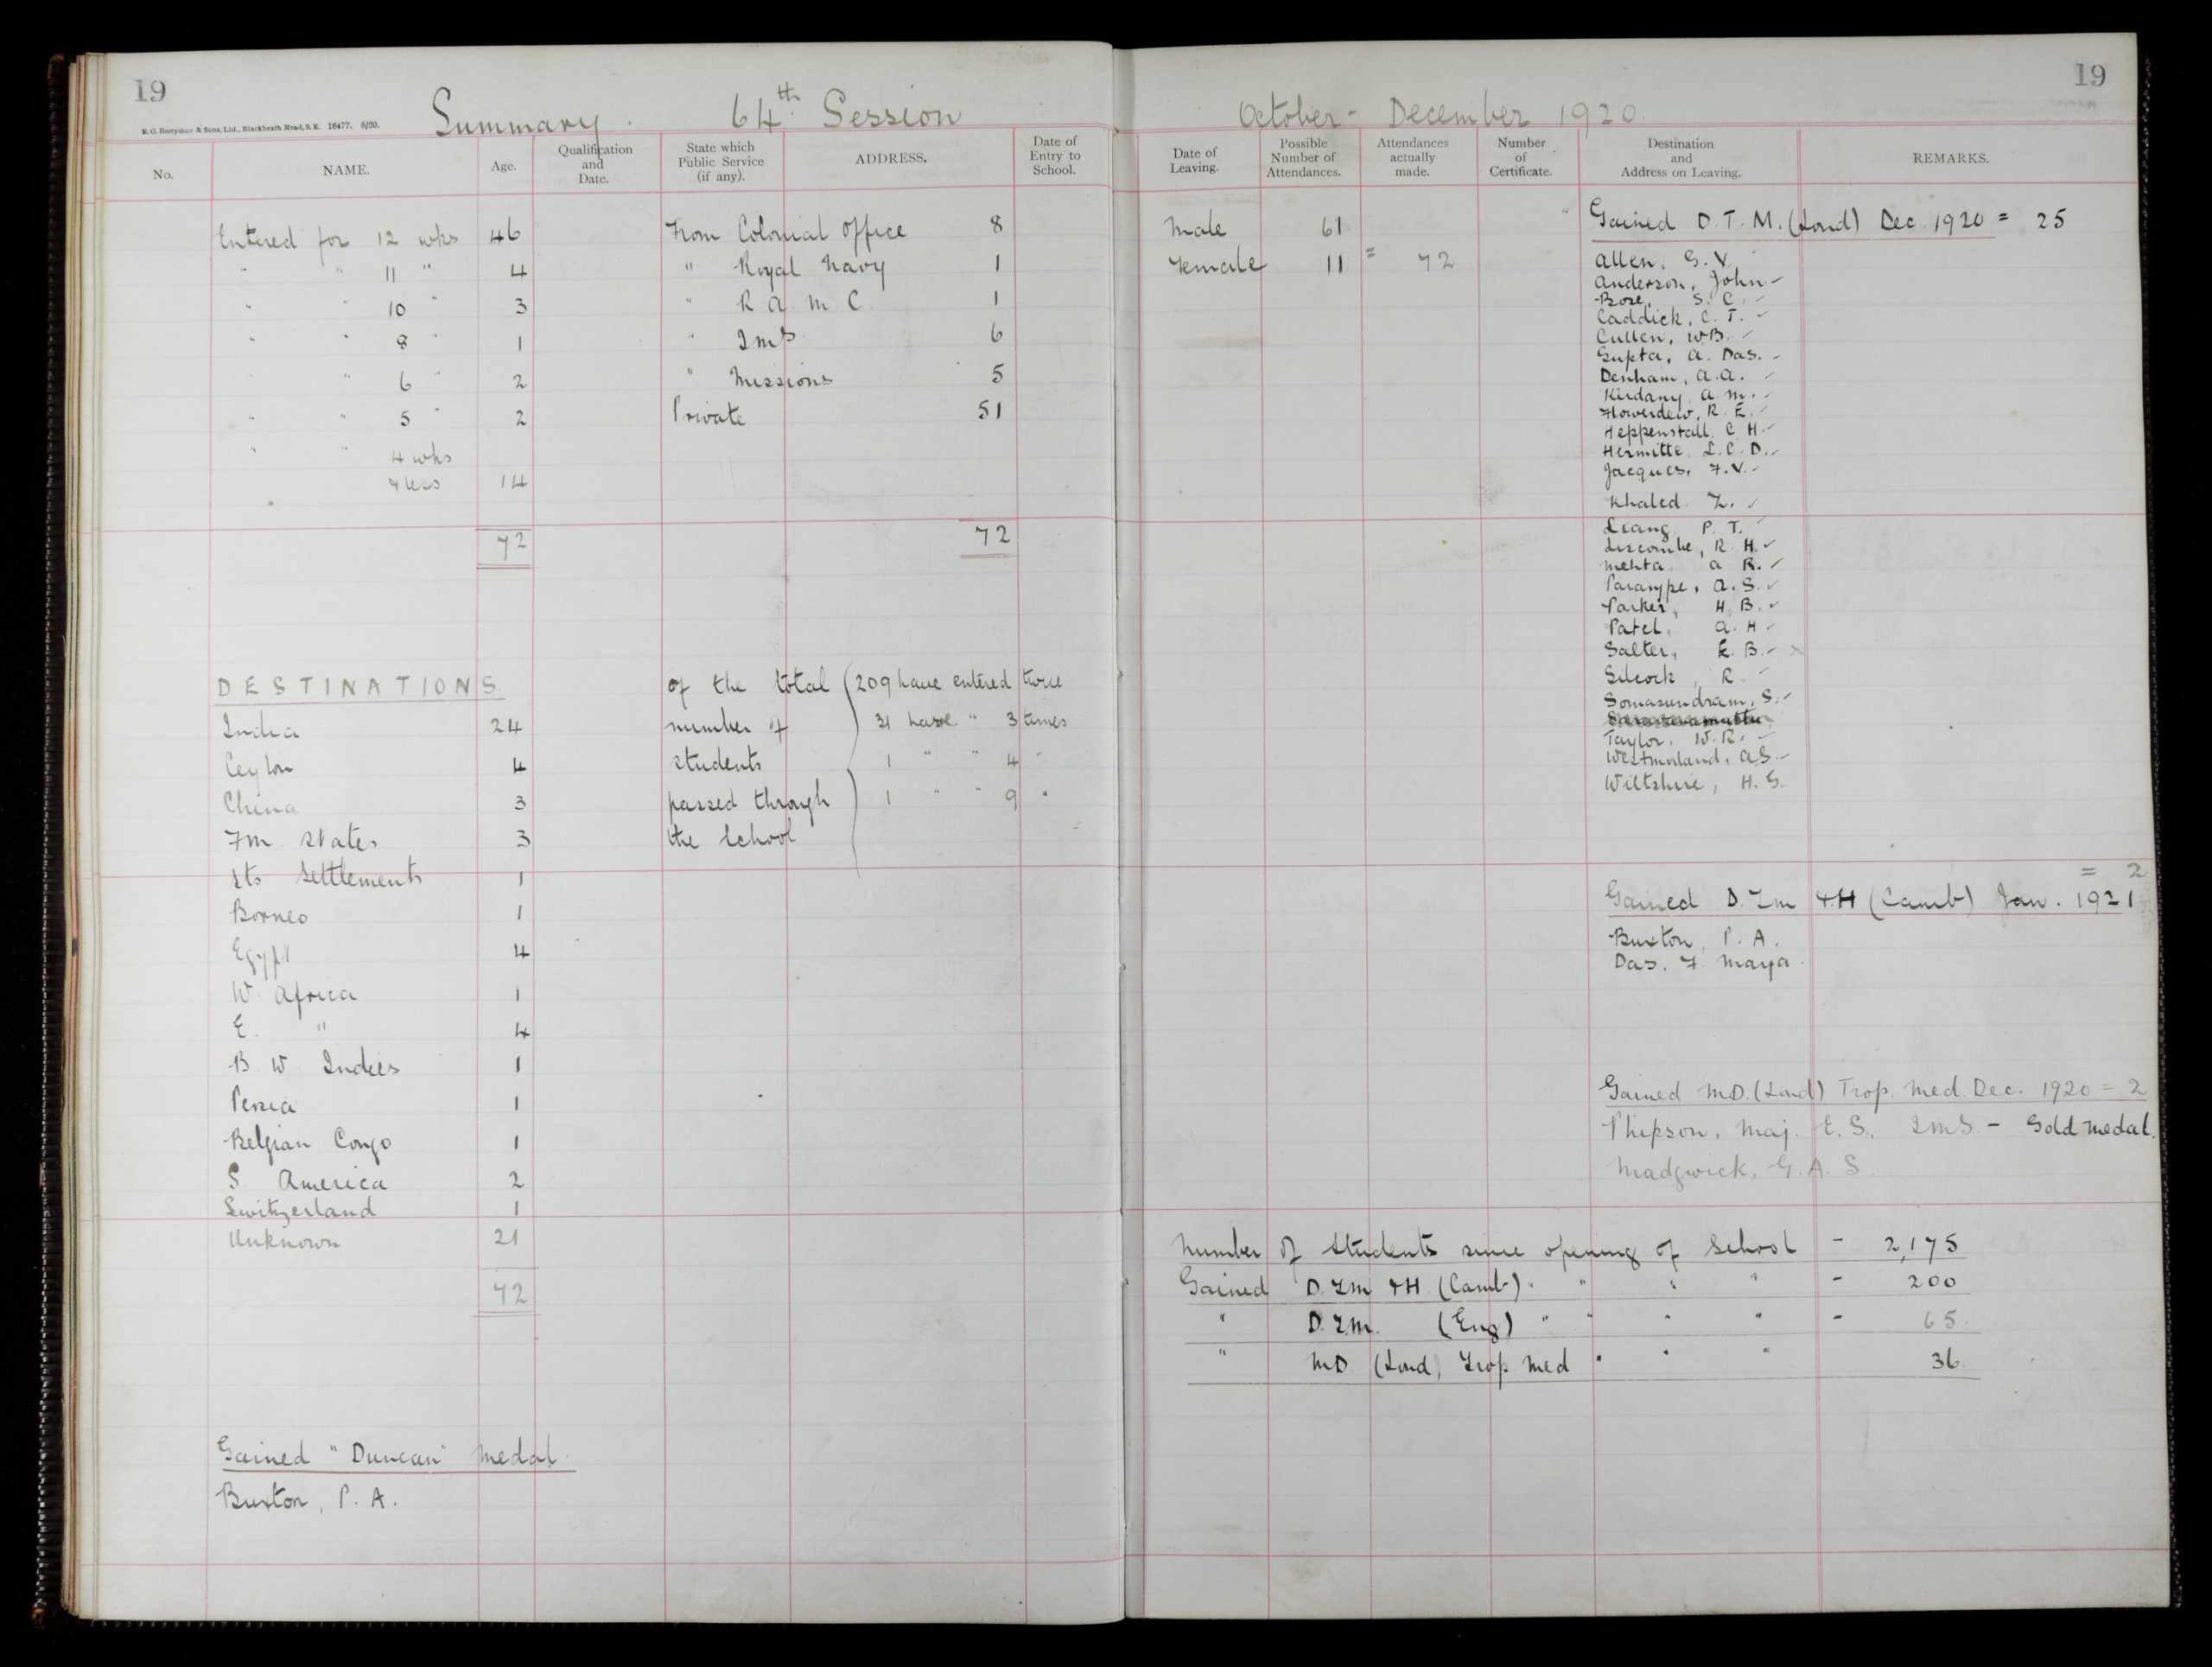 19
E. G. Berryman & Sons, Ltd., Blackheath Road, S.E. 16477. 8/20.
Summary. 64th Session
No. NAME. Age. Qualification and Date. State which Public Service (if any). ADDRESS. Date of Entry to School.
Entered for 12 wks 46 From Colonial Office 8
" " 11 " 4 " Royal Navy 1
" " 10 " 3 " R A M C. 1
" " 8 " 1 " IMS 6
" " 6 " 2 " Missions 5
" " 5 " 2 Private 51
" " 4 wks
& less 14
72 72
DESTINATIONS. of the total (209 have entered twice
India 24 number of 31 have " 3 times
Ceylon 4 students 1 " " 4 "
China 3 passed through 1 " " 9 "
F M States 3 the School
Sts Settlements 1
Borneo 1
Egypt 4
W. Africa 1
E. " 4
B W Indies 1
Persia 1
Belgian Congo 1
S. America 2
Switzerland 1
Unknown 21
72
Gained "Duncan" Medal.
Buxton, P. A.
19
October - December 1920.
Date of Leaving. Possible Number of Attendances. Attendances actually made. Number of Certificate. Destination and Address on Leaving. REMARKS.
Gained D. T. M. (Lond) Dec 1920 = 25
Male 61
Female 11 = 72
Allen, G. V.
Anderson, John
Bose, S. C.
Caddick, C. T.
Cullen, W B.
Gupta, A. Das.
Denham, A. A.
Kirdany A. M.
Flowerdew, R. E.
Heppenstall, C. H.
Hermitte, L. C. D.
Jacques, F. V.
Khaled Z.
Liang, P. T.
Liscombe, R. H.
Mehta A R.
Paranjpe, A. S.
Parker, H. B.
Patel, A. H
Salter, E. B. x
Silcock, R.
Somasundram, S.
Taylor, W. R.
Westmorland, A S
Wiltshire, H. G.
= 2
Gained D. T. M & H (Camb) Jan. 1921
Buxton, P. A.
Das. F. Maya
Gained M D. (Lond) Trop. Med. Dec. 1920 = 2
Phipson, Maj. E. S. IMS - Gold Medal.
Madgwick, G. A. S.
Number of Students since opening of School - 2,175
Gained D. T. M & H (Camb) " " " " - 200
" D. T. M. (Eng) " " " " - 65.
" M D (Lond) Trop Med " " " 36